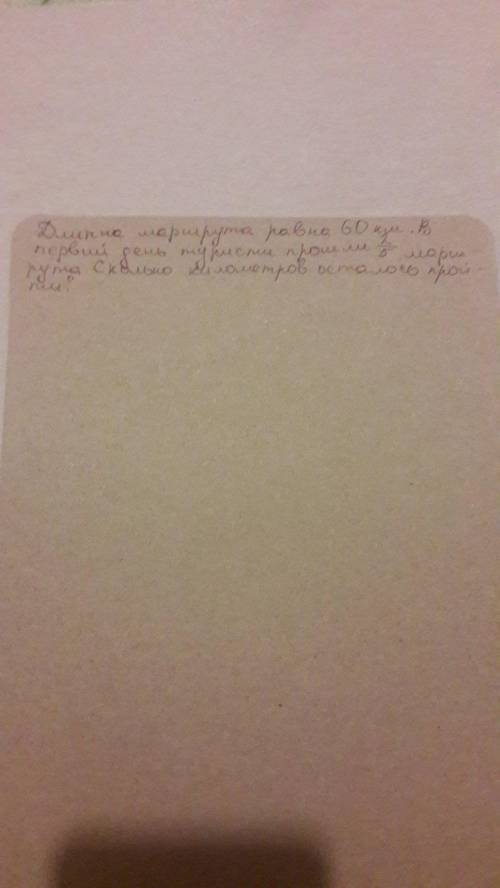 Длинна маршрута равна 60 км. В
первий день туристи прошли 2/5 марш-
рута Сколько километров осталось прой-
ти?